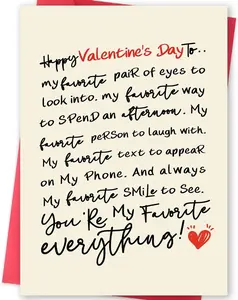 Happy Valentine's Day To..
my favorite paiR of eyes to
look into. my favorite way
to SPenD an afternoon. My
favorite peRSon to laugh with.
My favorite text to appeaR
on My Phone. And always
My favorite SMiLe to See.
You'Re My Favorite
everything!